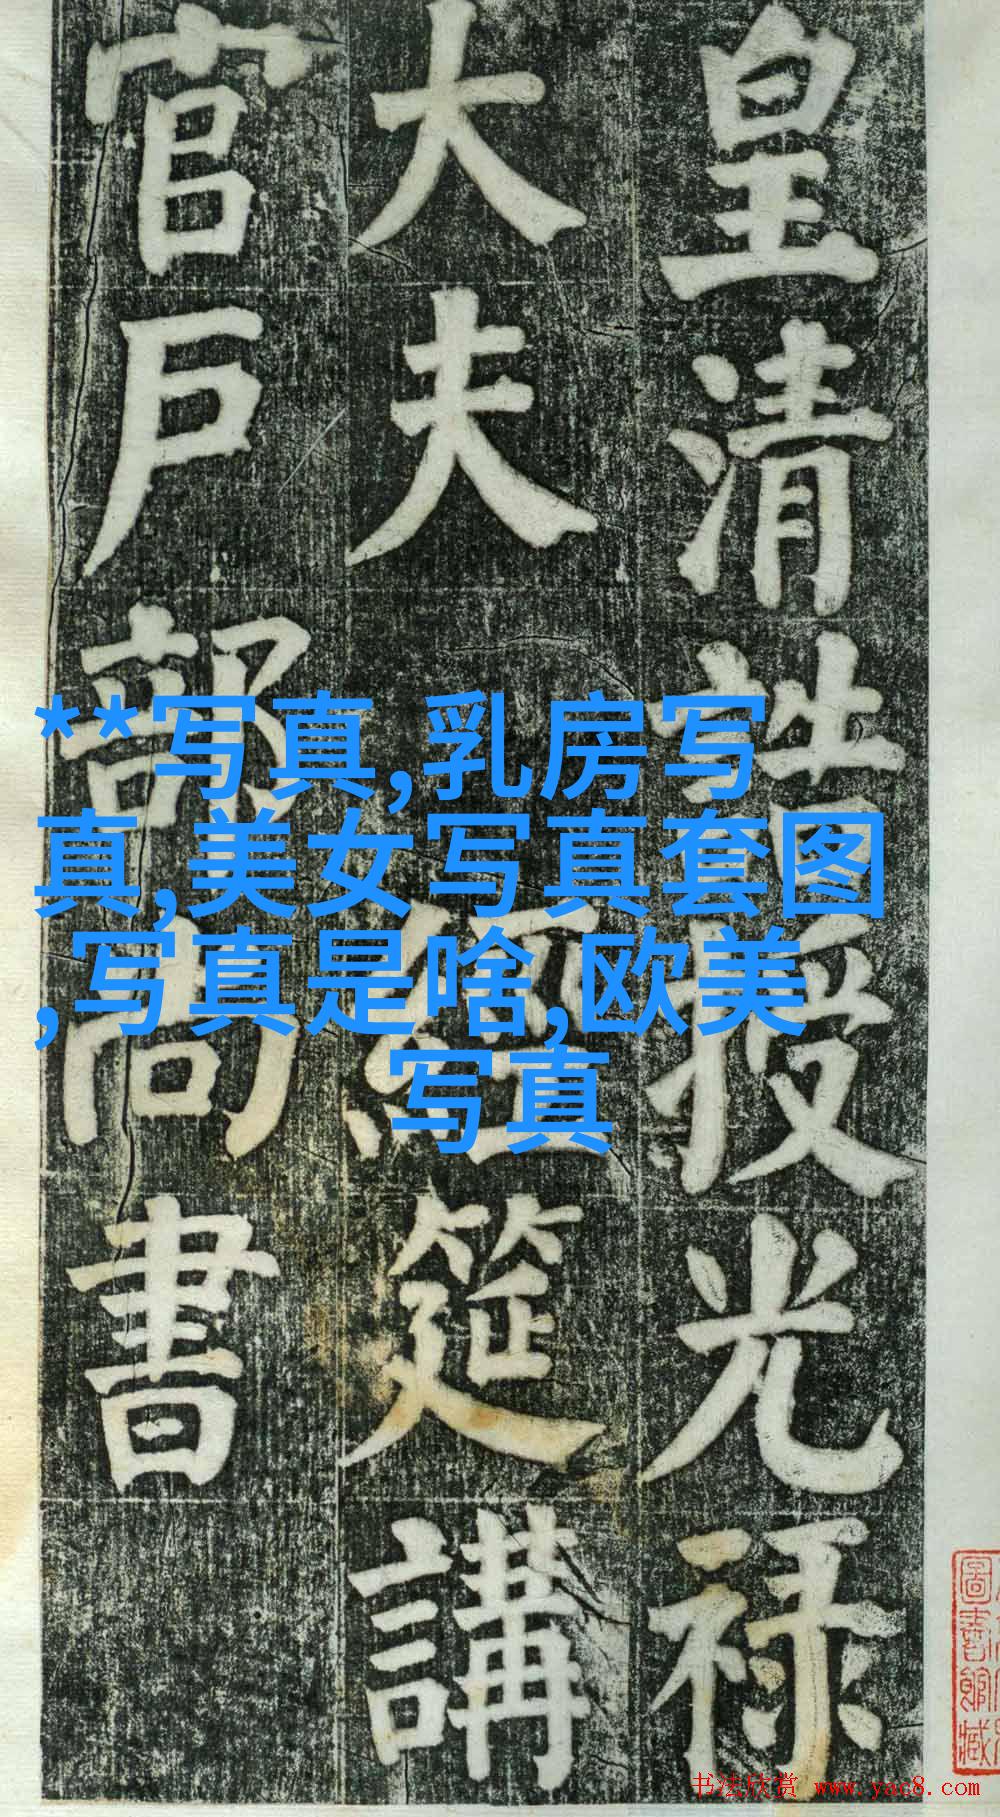 皇清誥授光祿
大夫 經筵講
官戸部尚書
**写真,乳房写
真,美女写真套图
,写真是啥,欧美
写真
圖書館藏
书法欣赏 www.yac8.com